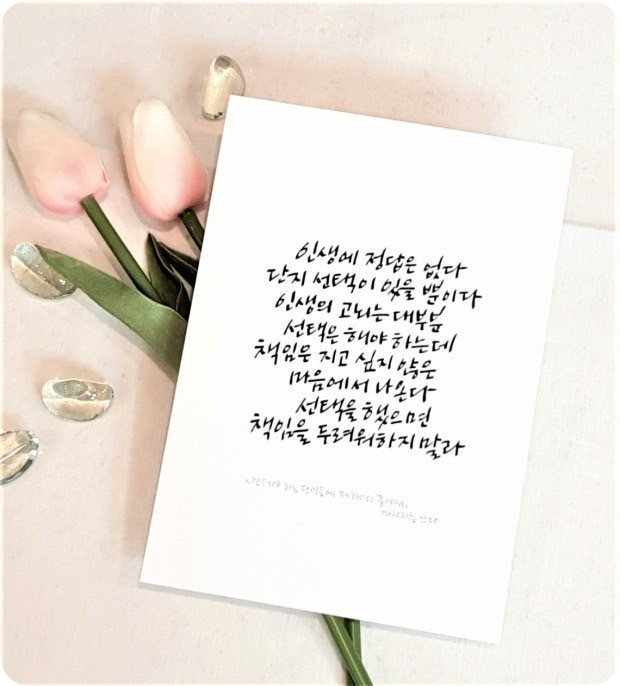 인생에 정답은 없다
단지 선택이 있을 뿐이다
인생의 고뇌는 대부분
선택은 해야 하는데
책임은 지고 싶지 않은
마음에서 나온다
선택을 했으면
책임을 두려워하지 말라
하는 단어들에 대하여 중에서,
쓰다